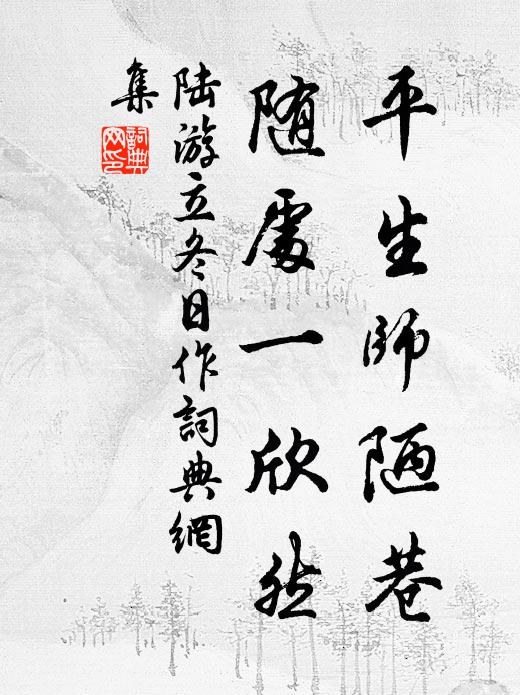 平生師陋巷
随處一欣然
陆游立冬日作詞典網
集
詞典網印